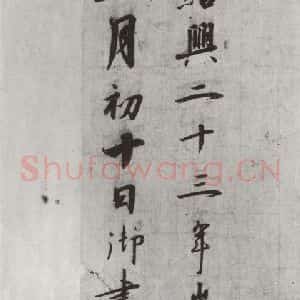 紹興二十三年
月初十日御書
Shufawang.CN